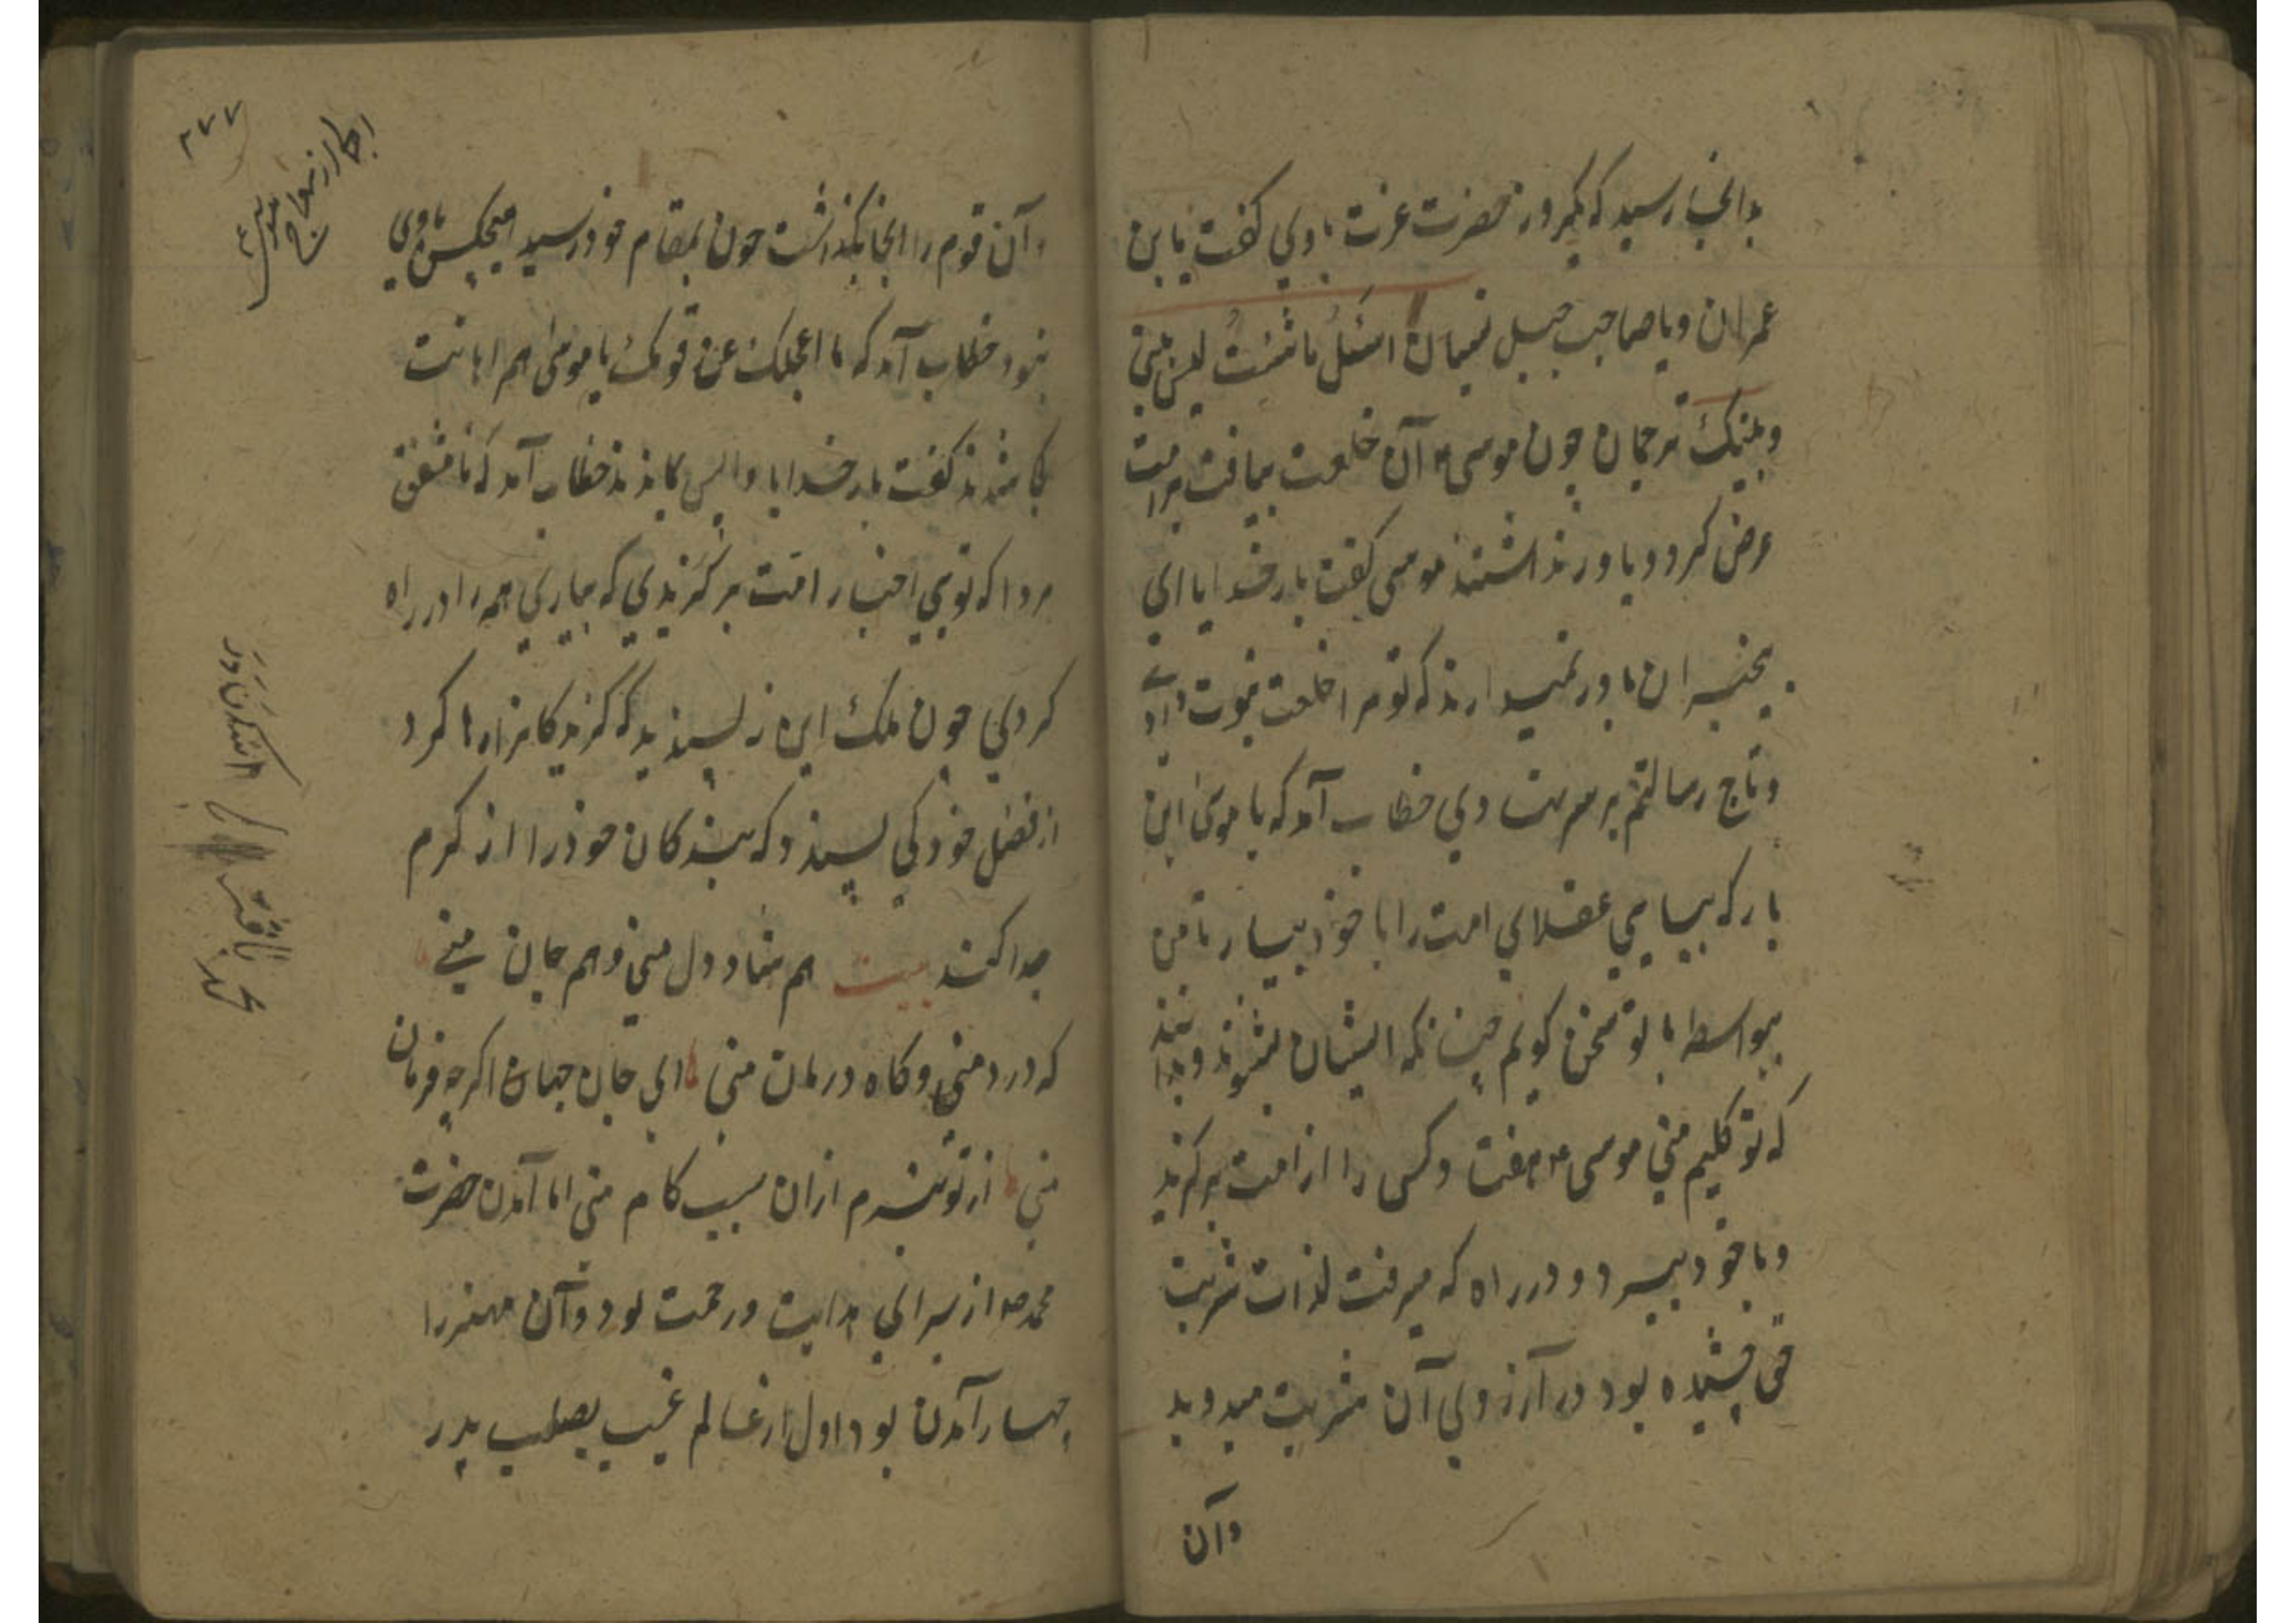 بدانجا رسید که یکروز حضرت عزت با وی کفت یا بن
عمران و یا صاحب جبل اسئل ما شئت لیس بینی
و بینک ترجمان چون موسی آن خلعت بیافت بر امت
عرض کرد و باور نداشتند موسی کفت بار خدایا این
بیخبران باور نمیدارند که تو مرا خلعت نبوت داده
و تاج رسالتم بر سر نهادی خطاب آمد که یا موسی این
بار که بیایی عقلای امت را با خود بیار تا من
بیواسطه با تو سخن کویم چنانکه ایشان بشنوند و بدانند
که تو کلیم منی موسی هفت کس را از امت برکزید
و با خود ببرد و در راه که میرفت لذات شربت
چشیده بود در آرزوی آن شربت میدوید
وآن
۲۷۷
وآن قوم را آنجا بکذاشت چون بمقام خود رسید هیچکس با وی
نبود خطاب آمد که ما اعجلک عن قومک یا موسی همراهانت
کجا شدند کفت بار خدایا واپس ماندند خطاب آمد که نامشفق
مردا که تویی اخیار امت برکزیدی که بیاری همه را در راه
کردی چون ملک این نپسندید که کزیدکانرا رها کرد
از فضل خود کی پسندد که بندکان خود را از کرم
جدا کند بیت هم شاد دل منی و هم جان منی
که درد منی و کاه درمان منی ای جان جهان اکرچه فرمان
منی از تو نبرم ازان سبب کام منی اما آمدن حضرت
محمد از برای هدایت و رحمت بود و آن مهتر را
چهار آمدن بود اول از عالم غیب بصلب پدر
محمد باقر